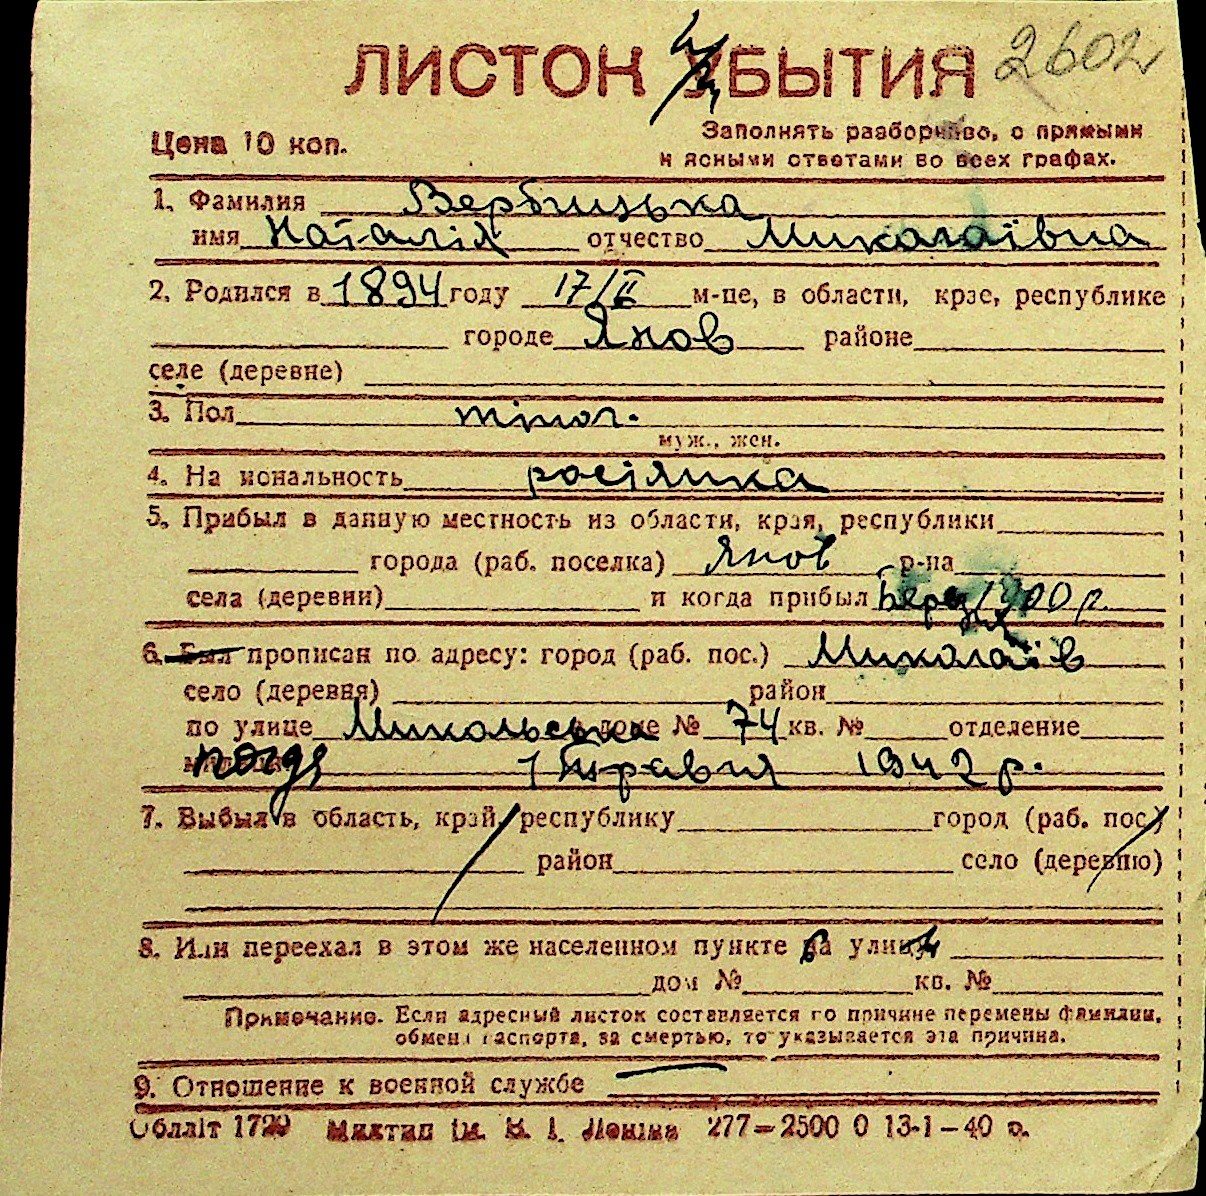 ЛИСТОК УБЫТИЯ 2602
Цена 10 коп.
Заполнять разборчиво, с прямыми
и ясными ответами во всех графах.
1. Фамилия Вербицька
имя Наталія отчество Миколаївна
2. Родился в 1894 году 17/II м-це, в области, крае, республике
городе Янов районе
селе (деревне)
3. Пол жіноч.
муж., жен.
4. Национальность росіянка
5. Прибыл в данную местность из области, края, республики
города (раб. поселка) Янов р-на
села (деревни) и когда прибыл 1900 р.
6. Был прописан по адресу: город (раб. пос.) Миколаїв
село (деревня) район
по улице Микольська доме № 74 кв. № отделение
1 травня 1942 р.
7. Выбыл в область, край, республику город (раб. пос.)
район село (деревню)
8. Или переехал в этом же населенном пункте на улицу
дом № кв. №
Примечание. Если адресный листок составляется по причине перемены фамилии,
обмена паспорта, за смертью, то указывается эта причина.
9. Отношение к военной службе —
Облліт 1799 Миктип ім. В. І. Леніна 277—2500 0 13-1—40 р.